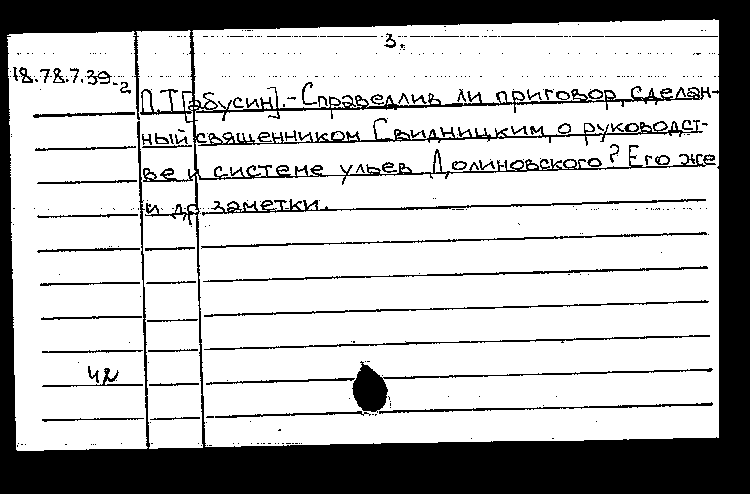 3.
18.78.7.39-2
П.Т[абусин].-Справедлив ли приговор, сделан-
ный священником Свидницким, о руководст-
ве и системе ульев Долиновского? Его же
и др. заметки.